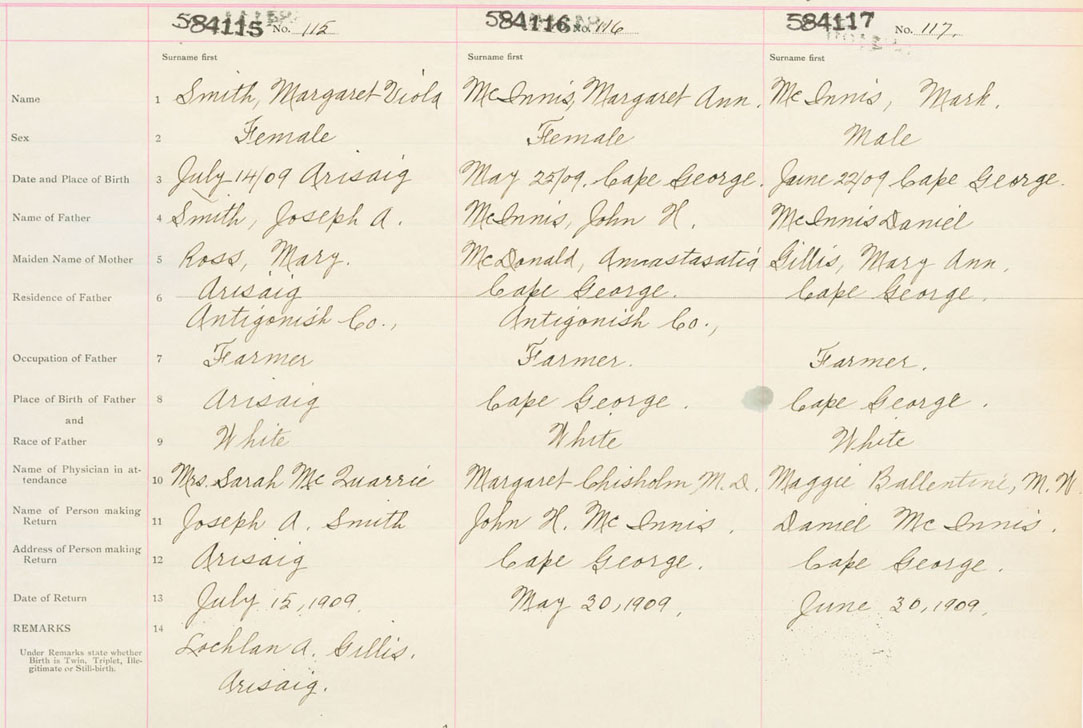 584115 No. 115 584116 No. 116 584117 No. 117.
Surname first Surname first Surname first
Name 1 Smith, Margaret Viola McInnis, Margaret Ann. McInnis, Mark.
Sex 2 Female Female Male
Date and Place of Birth 3 July 14/09 Arisaig May 25/09. Cape George. June 22/09 Cape George.
Name of Father 4 Smith, Joseph A. McInnis, John H. McInnis Daniel
Maiden Name of Mother 5 Ross, Mary. McDonald, Annastasatia Gillis, Mary Ann.
Residence of Father 6 Arisaig Cape George. Cape George.
Antigonish Co., Antigonish Co.,
Occupation of Father 7 Farmer Farmer. Farmer.
Place of Birth of Father 8 Arisaig Cape George. Cape George.
and
Race of Father 9 White White White
Name of Physician in at-
tendance 10 Mrs. Sarah McQuarrie Margaret Chisholm, M.D. Maggie Ballentine, M.W.
Name of Person making
Return 11 Joseph A. Smith John H. McInnis. Daniel McInnis.
Address of Person making
Return 12 Arisaig Cape George. Cape George.
Date of Return 13 July 15, 1909. May 30, 1909. June 30, 1909.
REMARKS 14
Lochlan A. Gillis.
Under Remarks state whether
Birth is Twin, Triplet, Ille-
gitimate or Still-birth.
Arisaig.